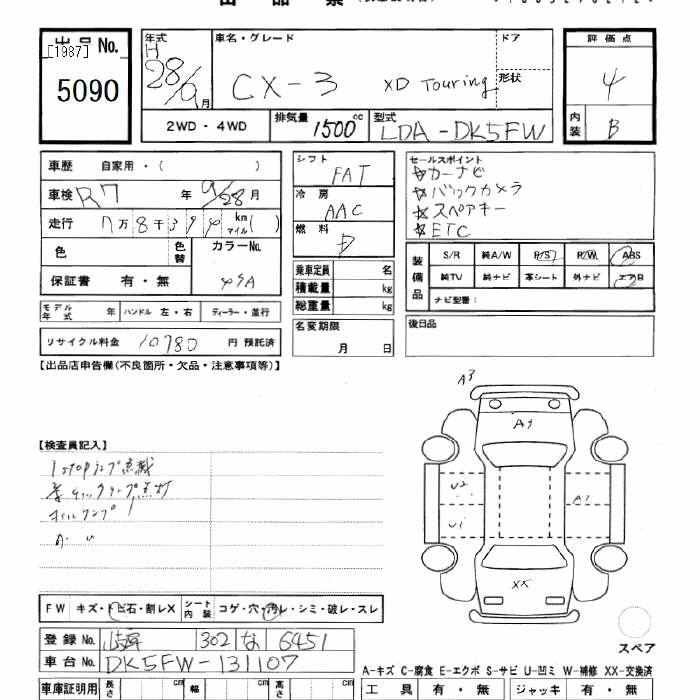 出品No. [1987] 5090
年式 H 28/9 月
車名・グレード CX-3 XD Touring
ドア
形状
評価点 4
内装 B
2WD・4WD
排気量 1500 cc
型式 LDA-DK5FW
車歴 自家用・( )
車検 R7 年 9/28 月
走行 7万8千394 km マイル( )
色 色替 カラーNo. 45A
保証書 有・無
モデル年式 年 ハンドル 左・右 ディーラー・並行
リサイクル料金 10780 円 預託済
シフト FAT
冷房 AAC
燃料 D
乗車定員 名
積載量 kg
総重量 kg
名変期限 月 日
セールスポイント
☆カーナビ
☆バックカメラ
☆スペアキー
☆ETC
装備品 S/R 純A/W P/S P/W ABS
純TV 純ナビ 革シート 外ナビ エアB
ナビ型番:
後日品
【出品店申告欄(不良箇所・欠品・注意事項等)】
A3
A1
U2
A1
U1
XX
【検査員記入】
FW キズ・トビ石・割レX シート内装 コゲ・穴・汚レ・シミ・破レ・スレ
登録No. 302 な 6451
車台No. DK5FW-131107
スペア
A-キズ C-腐食 E-エクボ S-サビ U-凹ミ W-補修 XX-交換済
車庫証明用 長さ cm 幅 cm 高さ cm
工具 有・無 ジャッキ 有・無